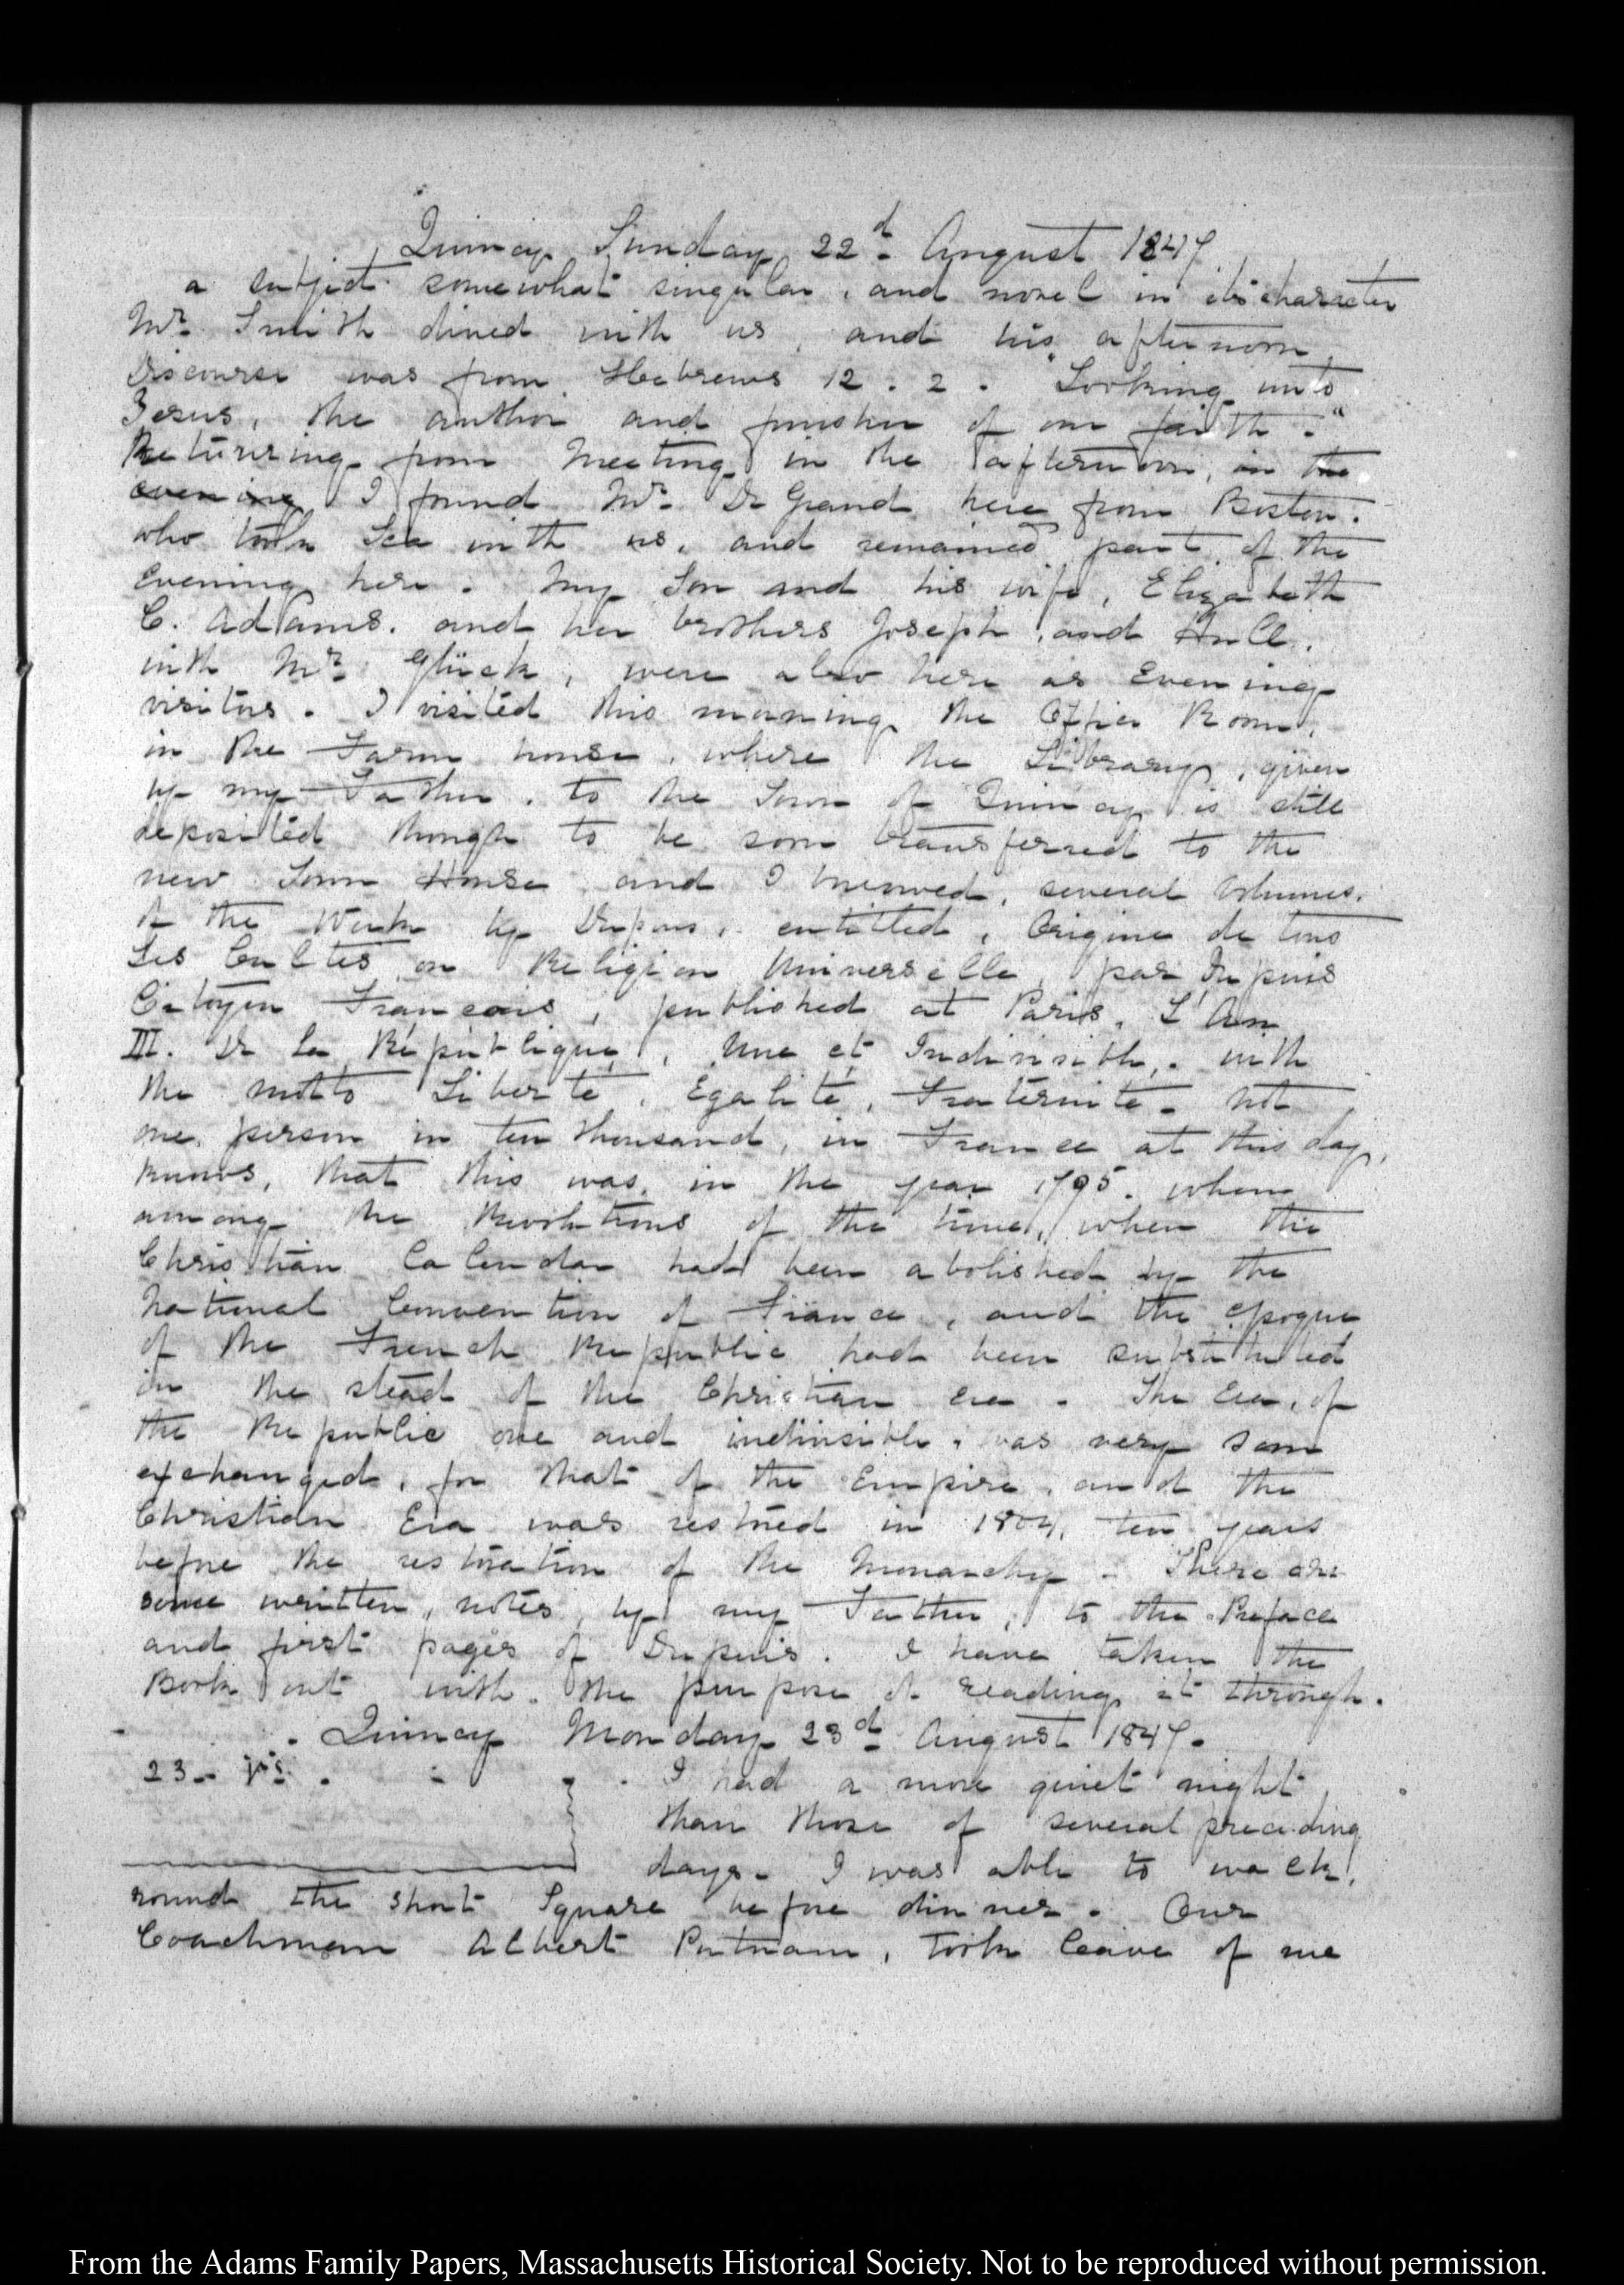 Quincy Sunday 22d. August 1847
a subject somewhat singular, and novel in its character
Mr. Smith dined with us, and his afternoon
Discourse was from Hebrews 12. 2. "Looking unto
Jesus, the author and finisher of our faith."
Returning from Meeting in the afternoon, in the
evening I found Mr. De Grand here from Boston.
who took Tea with us, and remained part of the
Evening here. My Son and his wife, Elizabeth
C. Adams. and her brothers Joseph, and Hull,
with Mr. Glück, were also here as Evening
visitors. I visited this morning the Office Room,
in the Farm house, where the Library, given
by my Father, to the Town of Quincy is still
deposited though to be soon transferred to the
new Town House and I viewed, several Volumes.
of the Work by Dupuis, entitled, Origine de tous
Les Cultes, ou Religion Universelle, par Dupuis
Citoyen François, published at Paris, L'An
III. De La République, Une et Indivisible,. with
the motto Liberté, Egalité, Fraternité. Not
one person in ten thousand, in France at this day,
knows, that this was in the year 1795. when
among the Revolutions of the time, when the
Christian Calendar had been abolished by the
National Convention of France, and the epoque
of the French Republic had been substituted
in the stead of the Christian era. The Era, of
the Republic one and indivisible, was very soon
exchanged, for that of the Empire, and the
Christian Era was restored in 1804, ten years
before the restoration of the Monarchy. There are
some written, notes, by my Father, to the Preface
and first pages of Dupuis. I have taken the
Book out with the purpose of reading it through.
Quincy Monday 23d. August 1847.
23. I had a more quiet night
than those of several preceding
days. I was able to walk,
round the short Square before dinner. Our
Coachman Albert Putnam, took leave of me
From the Adams Family Papers, Massachusetts Historical Society. Not to be reproduced without permission.